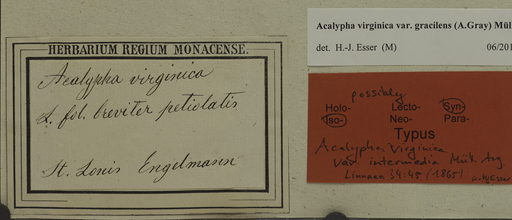 HERBARIUM REGIUM MONACENSE.
Acalypha virginica
L. fol. breviter petiolatis
St. Louis Engelmann
Acalypha virginica var. gracilens (A.Gray) Mül
det. H.-J. Esser (M) 06/201
possibly
Holo- Lecto- Syn-
Iso- Neo- Para-
Typus
Acalypha virginica
var. intermedia Müll. Arg.
Linnaea 34: 45 (1865)